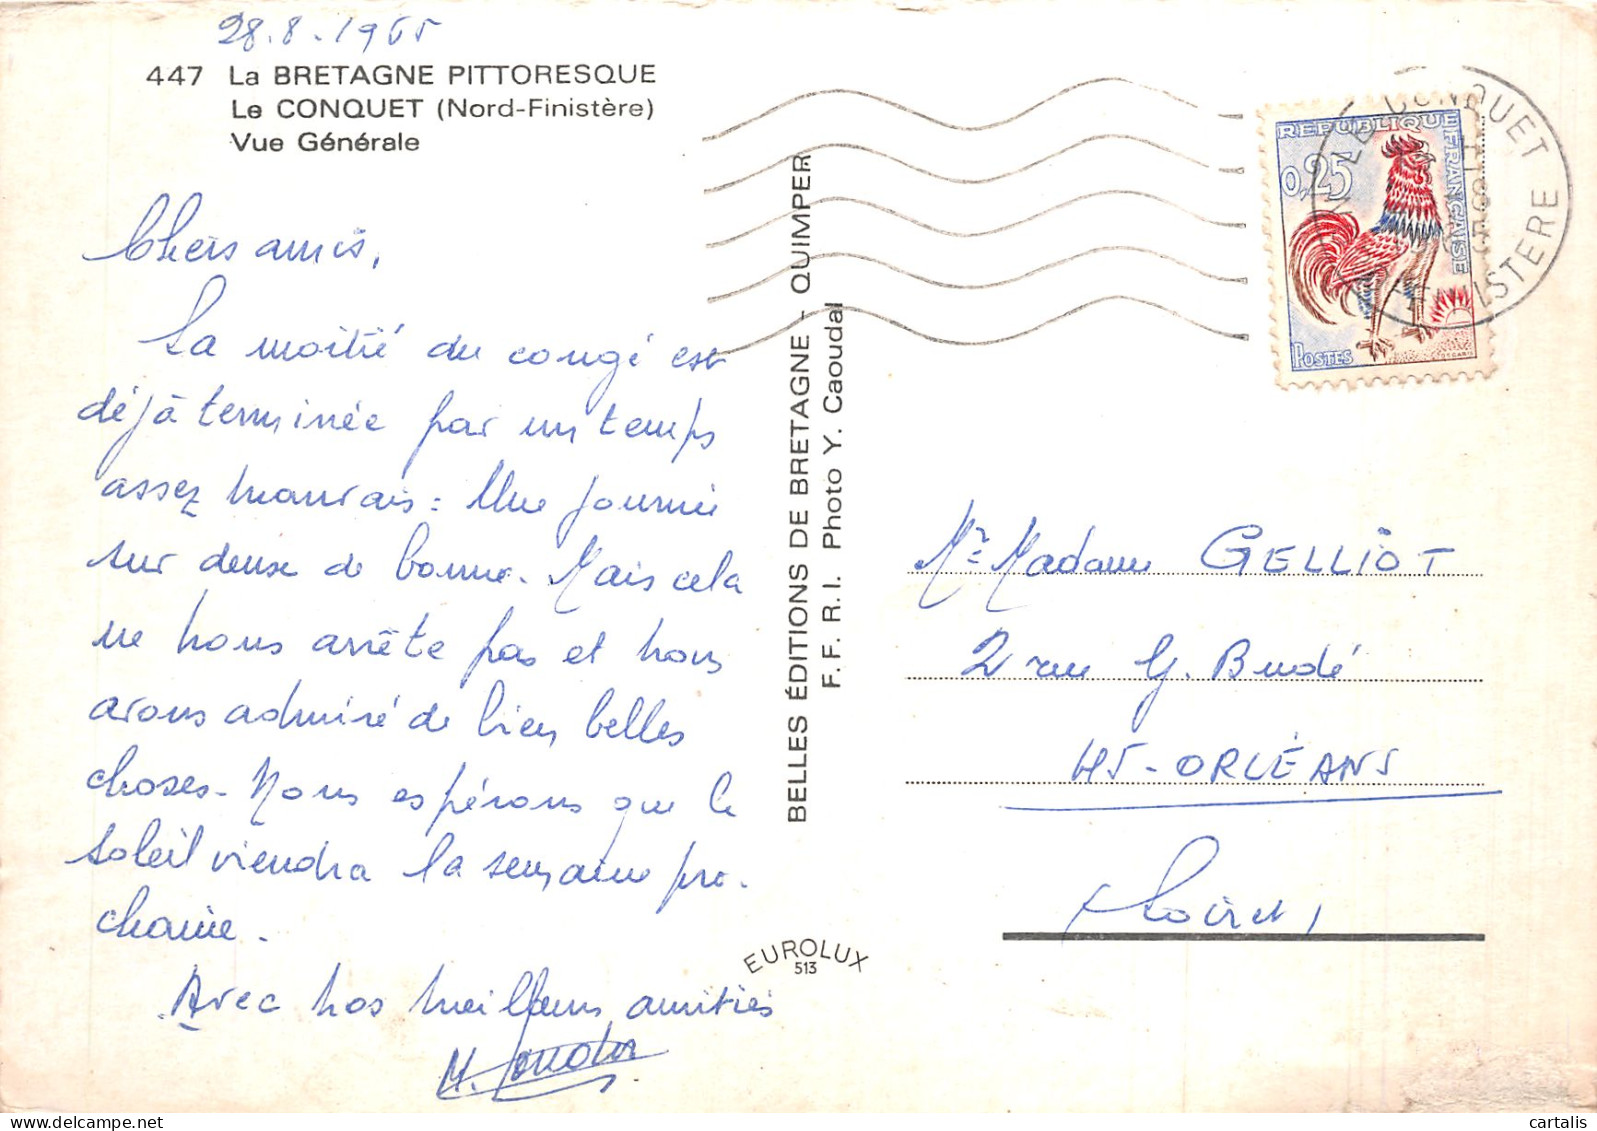 28.8.1965
447 La BRETAGNE PITTORESQUE
Le CONQUET (Nord-Finistère)
Vue Générale
Chers amis,
La moitié du congé est
déjà terminée par un temps
assez mauvais : Une journée
sur deux de bonne. Mais cela
ne nous arrête pas et nous
avons admiré de bien belles
choses. Nous espérons que le
soleil viendra la semaine pro-
chaine.
Avec nos meilleures amitiés
BELLES ÉDITIONS DE BRETAGNE - QUIMPER
F. F. R. I. Photo Y. Caoudal
EUROLUX
513
REPUBLIQUE FRANÇAISE
0,25
POSTES
LE CONQUET
FINISTERE
Mr Madame GELLIOT
2 rue G. Budé
45-ORLÉANS
(Loiret)
cartalis